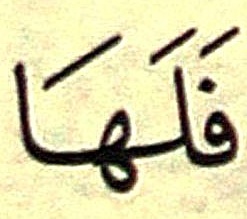 فَلَهَا